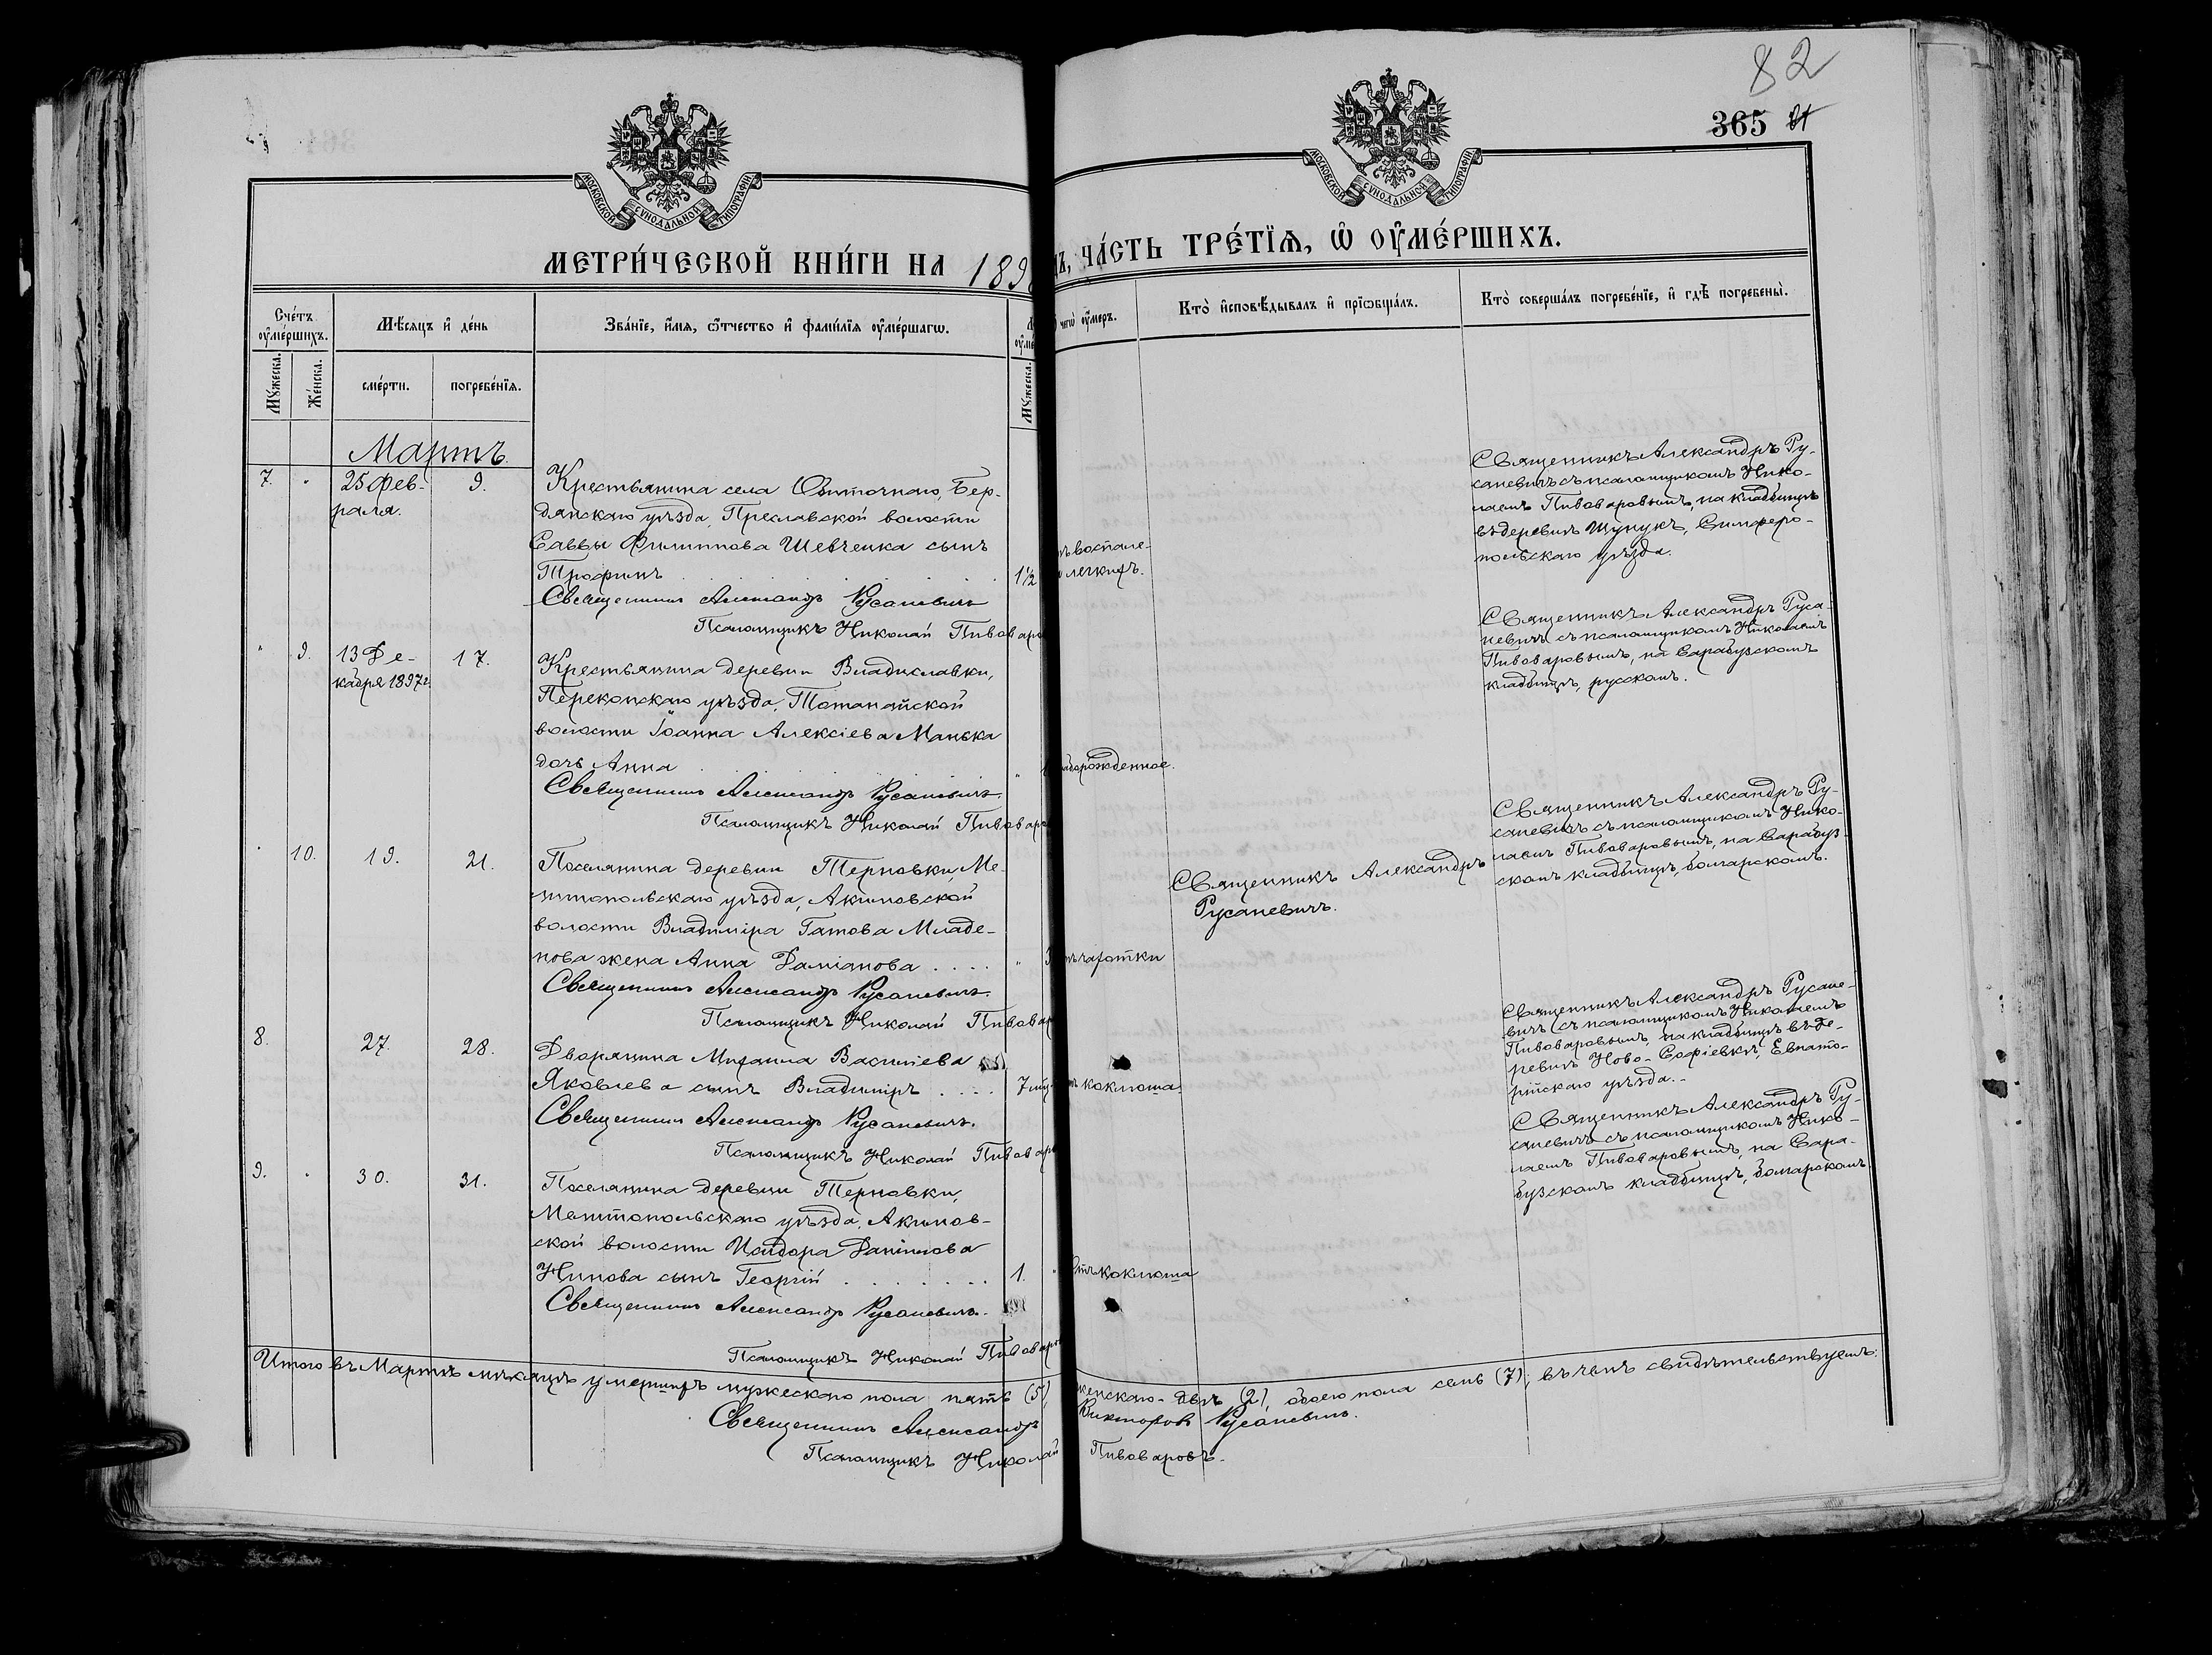 82
365 81
МОСКОВСКОЙ СУНОДАЛЬНОЙ ТИПОГРАФІИ
МОСКОВСКОЙ СУНОДАЛЬНОЙ ТИПОГРАФІИ
МЕТРИ́ЧЕСКОЙ КНИ́ГИ НА 189
ЧА́СТЬ ТРЕ́ТЇѦ, Ѿ ОУ҆МЕ́РШИХЪ.
Сче́тъ оу҆ме́ршихъ.
Мѣ́сяцъ и҆ де́нь
Зва́нїе, и҆́мя, ѻ҆́тчество и҆ фами́лїя оу҆ме́ршагѡ.
чегѡ̀ оу҆́меръ.
Кто̀ и҆сповѣ́дывалъ и҆ прїѡбща́лъ.
Кто̀ соверша́лъ погребе́нїе, и҆ гдѣ̀ погребены̀.
Мꙋ́жеска.
Же́нска.
сме́рти.
погребе́нїя.
Мꙋ́жеска.
Мартъ.
7. " 25 Фев- 9.
раля.
Крестьянина села Обиточнаго, Бер-
дянскаго уѣзда, Преславской волости
Саввы Филиппова Шевченка сынъ
Трофимъ . . . . . . 1½
воспале-
легкихъ.
Священникъ Александръ Русаневичъ
Псаломщикъ Николай Пивовар
Священникъ Александръ Ру-
саневичъ съ псаломщикомъ Нико-
лаемъ Пивоваровымъ, на кладбищѣ
въ деревнѣ Шунукъ, Симферо-
польскаго уѣзда.
" 9. 13 Де- 17.
кабря 1897г.
Крестьянина деревни Владиславки,
Перекопскаго уѣзда, Тотанайской
волости Іоанна Алексіева Манька
дочь Анна . . . . . "
рожденное.
Священникъ Александръ Русаневичъ.
Псаломщикъ Николай Пивовар
Священникъ Александръ Руса-
невичъ съ псаломщикомъ Николаемъ
Пивоваровымъ, на Сарабузскомъ
кладбищѣ, русскомъ.
" 10. 19. 21.
Поселянина деревни Терновки, Ме-
литопольскаго уѣзда, Акимовской
волости Владиміра Гатова Младе-
нова жена Анна Даміанова . . . . "
чахотки
Священникъ Александръ Русаневичъ.
Псаломщикъ Николай Пивовар
Священникъ Александръ
Русаневичъ.
Священникъ Александръ Ру-
саневичъ съ псаломщикомъ Нико-
лаемъ Пивоваровымъ, на Сарабуз-
скомъ кладбищѣ, болгарскомъ.
8. 27. 28.
Дворянина Михаила Василіева
Яковлева сынъ Владиміръ . . . . 7
коклюша.
Священникъ Александръ Русаневичъ.
Псаломщикъ Николай Пивовар
Священникъ Александръ Русане-
вичъ съ псаломщикомъ Николаемъ
Пивоваровымъ, на кладбищѣ въ де-
ревнѣ Ново-Софіевкѣ, Евпато-
рійскаго уѣзда.-
9. " 30. 31.
Поселянина деревни Терновки,
Мелитопольскаго уѣзда, Акимов-
ской волости Исидора Даніилова
Нинова сынъ Георгій . . . . . . . 1. "
коклюша
Священникъ Александръ Русаневичъ.
Псаломщикъ Николай Пивовар
Священникъ Александръ Ру-
саневичъ съ псаломщикомъ Нико-
лаемъ Пивоваровымъ, на Сара-
бузскомъ кладбищѣ, болгарскомъ
Итого въ Мартѣ мѣсяцѣ умершихъ мужескаго пола пять (5), женскаго - двѣ (2), обоего пола семь (7); въ чемъ свидѣтельствуемъ:
Священникъ Александръ Викторовъ Русаневичъ.
Псаломщикъ Николай Пивоваровъ.